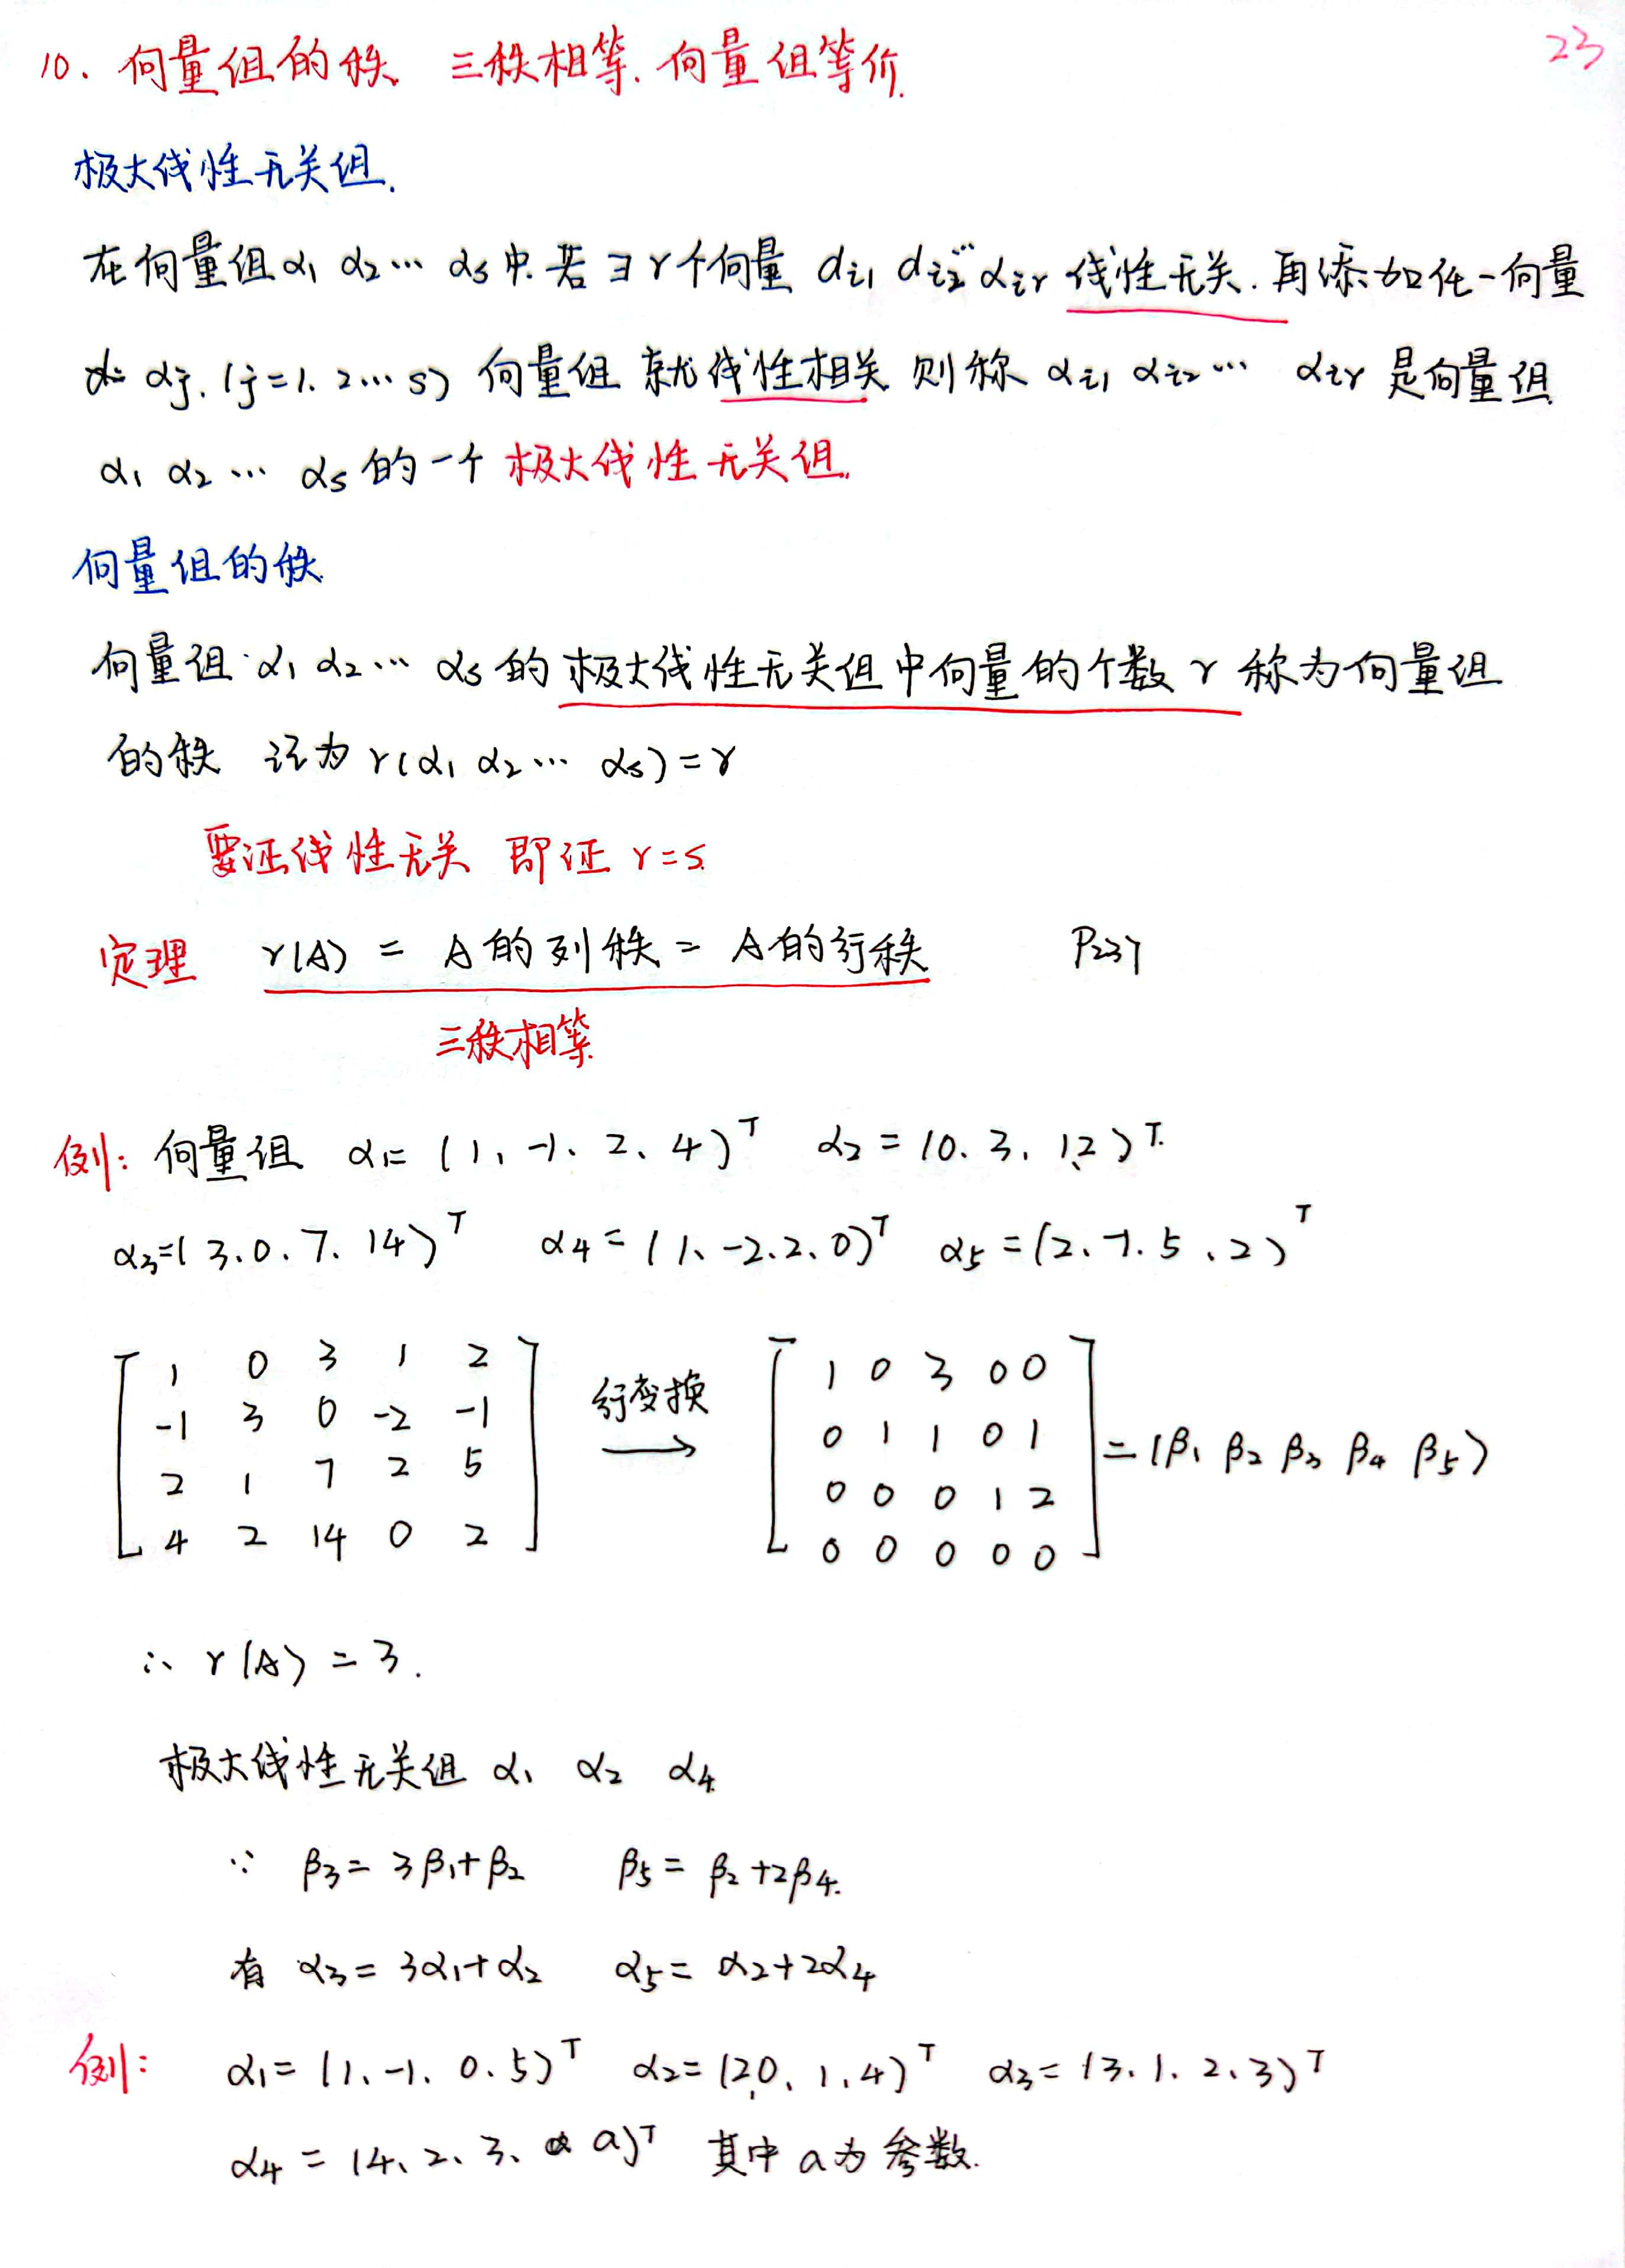 10、向量组的秩 三秩相等. 向量组等价.
23
极大线性无关组.
在向量组α₁ α₂… αₛ中.若∃r个向量 αᵢ₁ αᵢ₂…αᵢᵣ 线性无关.再添加任一向量
αⱼ.(j=1.2…s) 向量组 就线性相关 则称 αᵢ₁ αᵢ₂… αᵢᵣ 是向量组
α₁ α₂… αₛ的一个 极大线性无关组.
向量组的秩
向量组 α₁ α₂… αₛ的极大线性无关组中向量的个数 r 称为向量组
的秩 记为 r(α₁ α₂… αₛ)=r
要证线性无关 即证 r=s
定理 r(A) = A的列秩 = A的行秩 P237
三秩相等
例: 向量组 α₁= (1、-1、2、4)ᵀ α₂=(0.3.1.2)ᵀ
α₃=(3.0.7.14)ᵀ α₄=(1、-2.2.0)ᵀ α₅=(2、-1.5、2)ᵀ
[ 1 0 3 1 2 ] 行变换 [ 1 0 3 0 0 ]
[ -1 3 0 -2 -1 ] → [ 0 1 1 0 1 ] =(β₁ β₂ β₃ β₄ β₅)
[ 2 1 7 2 5 ] [ 0 0 0 1 2 ]
[ 4 2 14 0 2 ] [ 0 0 0 0 0 ]
∴ r(A)=3.
极大线性无关组 α₁ α₂ α₄
∵ β₃=3β₁+β₂ β₅=β₂+2β₄.
有 α₃=3α₁+α₂ α₅=α₂+2α₄
例: α₁=(1、-1.0.5)ᵀ α₂=(2,0、1.4)ᵀ α₃=(3.1.2.3)ᵀ
α₄=(4、2、3、a)ᵀ 其中a为参数.